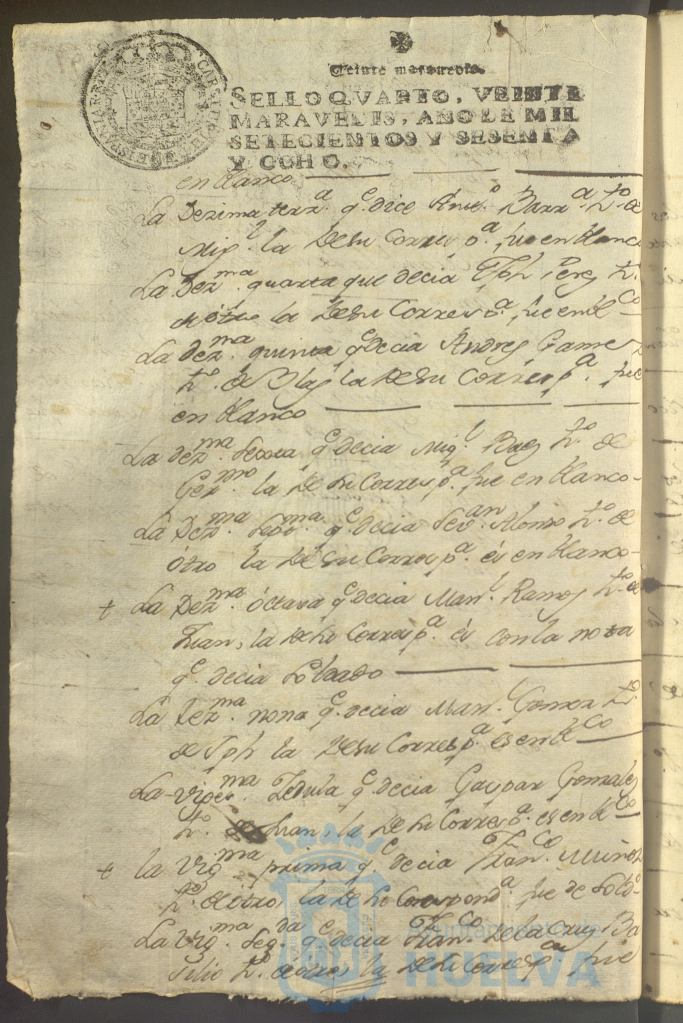 Veinte maravedis.
SELLO QVARTO, VEINTE
MARAVEDIS, AÑO DE MIL
SETECIENTOS Y SESENTA
Y OCHO.
en blanco
La Dezima terz.ª q.e dice Ant.º Barr.ª h.º de
Mig.l la de su Corresp.ª fue en blanco
La Dez.ma quarta que decia Jph Perez h.º
de otro la de su Corresp.ª fue en bl.co
La dez.ma quinta q.e decia Andres Game
h.º de Blas la de su Corresp.ª fue
en blanco
La dez.ma sexta q.e decia Mig.l Baez h.º de
Ger.mo la de su Corresp.ª fue en blanco
La Dez.ma Sep.ma q.e decia Sev.an Alonso h.º de
otro la de su Corresp.ª es en blanco
+ La Dez.ma octava q.e decia Man.l Ramos h.º de
Juan, la de su Corresp.ª es con la nota
q.e decia Soldado
La Dez.ma nona q.e decia Man.l Gomez h.º
de Jph la de su Corresp.ª es en bl.co
La vige.ma Zedula q.e decia Gaspar Gonzalez
h.º de Juan, la de su Corresp.ª es en bl.co
+ la vig.ma prima q.e decia Fran.co Muñoz
h.º de otro, la de su Correspond.ª fue de Sold.º
La vig.ma seg.da q.e decia Fran.co de la Cruz Ba
silio h.º de otro, la de su Corresp.ª fue
Ayuntamiento de
HUELVA